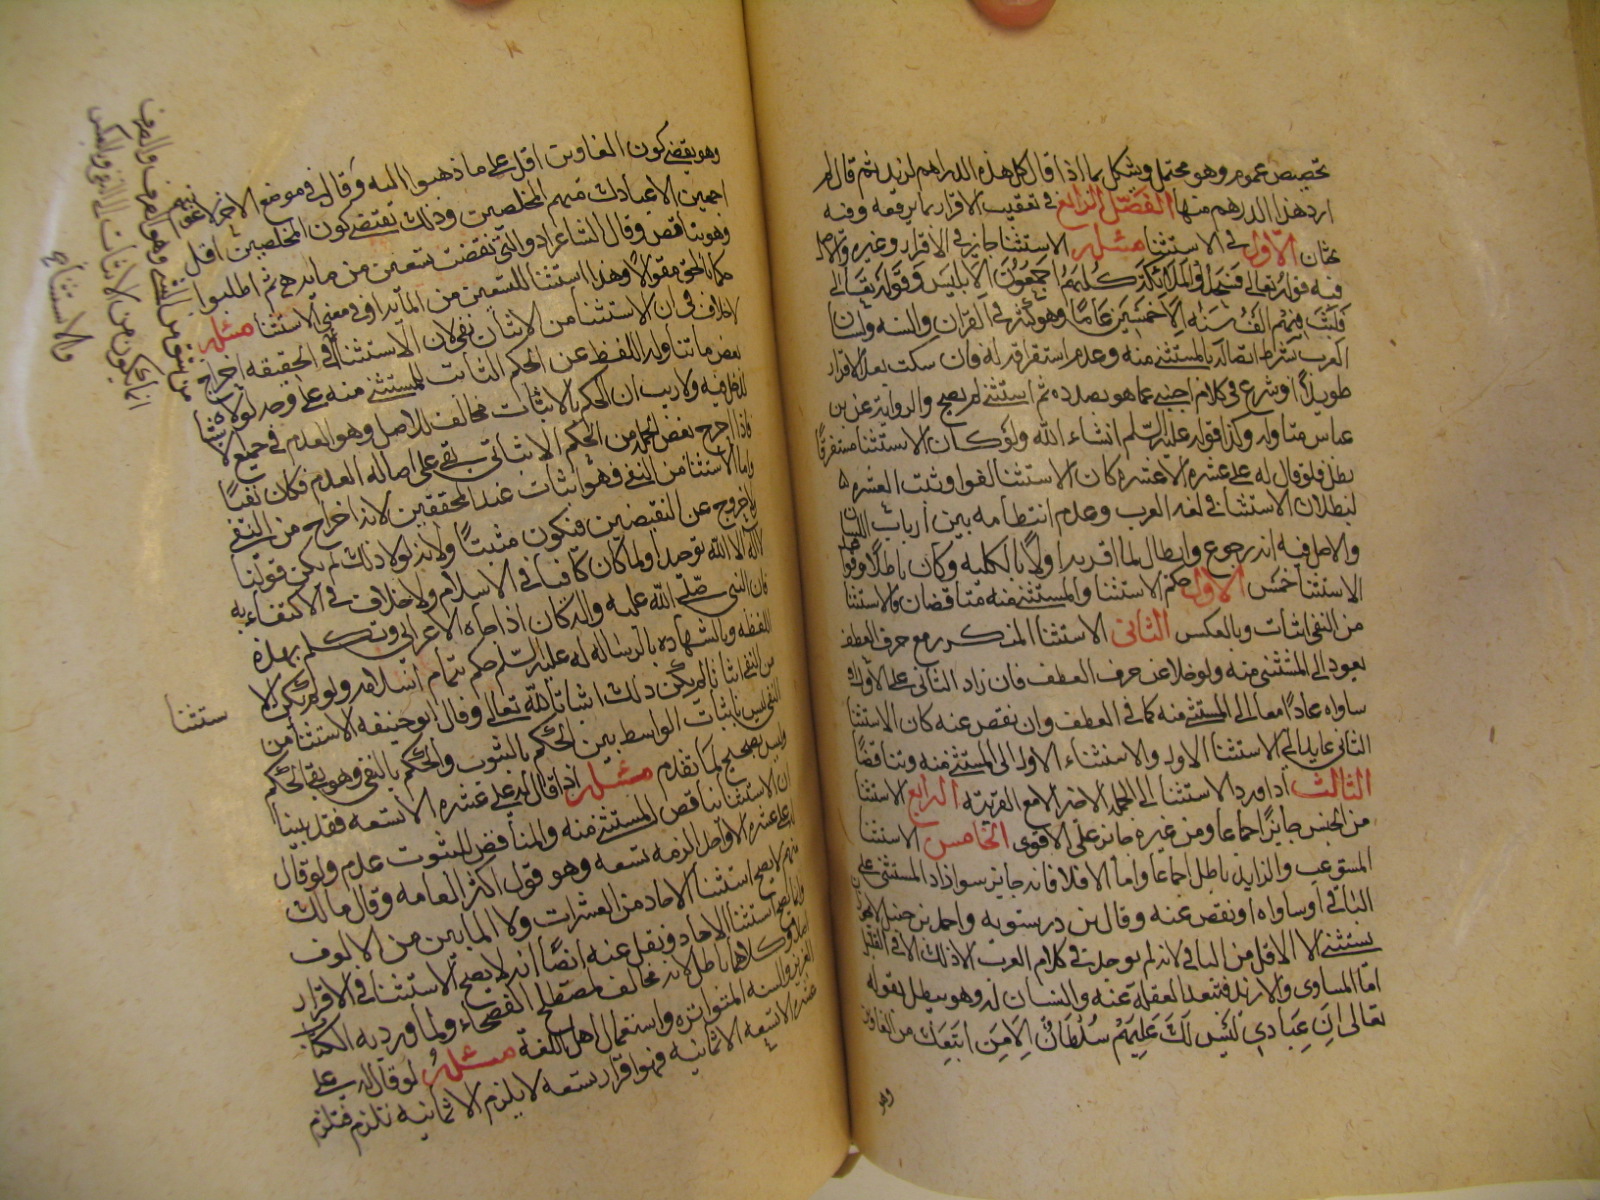 تخصيص عموم وهو محتمل ويشكل بما اذا قال كل هذه الدراهم لزيد ثم قال لم
ارد هذا الدرهم منها الفصل الرابع في تعقيب الاقرار بما يرفعه وفيه
بحثان الاول في الاستثنا مسئله الاستثنا جايز في الاقرار وغيره والاصل
فيه قوله تعالى فسجد الملائكة كلهم اجمعون الا ابليس وقوله تعالى
فلبث فيهم الف سنه الا خمسين عاما وهو كثير في القران والسنه ولسان
العرب بشرط اتصاله بالمستثنى منه وعدم استغراقه له فان سكت بعد الاقرار
طويلا او شرع في كلام اجنبي عما هو بصدده ثم استثنى لم يصح والرواية عن بن
عباس متاوله وكذا قوله عليه السلم انشاء الله ولو كان الاستثنا مستغرقا
بطل فلو قال له على عشره الا عشره كان الاستثنا لغوا وثبت العشره
لبطلان الاستثنا في لغة العرب وعدم انتظامه بين ارباب اللسان
والاصل فيه انه رجوع وابطال لما اقر به اولا بالكليه وكان باطلا وقواعد
الاستثنا خمس الاول حكم الاستثنا والمستثنى منه متناقضان والاستثنا
من النفي اثبات وبالعكس الثاني الاستثنا المذكور مع حرف العطف
يعود الى المستثنى منه ولو خلا عن حرف العطف فان زاد الثاني على الاول او
ساواه عادا معا الى المستثنى منه كما في العطف وان نقص عنه كان الاستثنا
الثاني عايدا الى الاستثنا الاول والاستثناء الاول الى المستثنى منه ويتناقضا
الثالث اذا ورد الاستثنا الى الجمل الاخر الا مع القرينه الرابع الاستثنا
من الجنس جايز اجماعا ومن غيره جايز على الاقوى الخامس الاستثنا
المستوعب والزايد باطل اجماعا واما الاقل فانه جايز سوا زاد المستثنى على
الباقي او ساواه او نقص عنه وقال بن درستويه واحمد بن حنبل لا يجوز ان
يستثنى الا الاقل من الباقي لانه لم يوجد في كلام العرب الا ذلك الا في القليل
اما المساوي والازيد فتبعد الغفلة عنه والنسيان له وهو يبطل بقوله
تعالى ان عبادي ليس لك عليهم سلطان الا من اتبعك من الغاوين
وهو
وهو يقضي كون الغاوين اقل على ما ذهبوا اليه وقال في موضع الاخر لاغوينهم
اجمعين الا عبادك منهم المخلصين وذلك يقتضي كون المخلصين اقل
وهو يناقض وقال الشاعر ادوا التي نقضت تسعين من مايه ثم اطلبوا
حكما بالحق مقوالا وهذا استثنا للتسعين من المايه او في معنى الاستثنا مسئله
لا خلاف في ان الاستثنا من الاثبات نفي لان الاستثنا في الحقيقه اخراج
بعض ما تناوله اللفظ عن الحكم الثابت للمستثنى منه على وجه لولا الاستثنا
لدخل فيه ولا ريب ان الحكم بالاثبات مخالف للاصل وهو العدم في جميع الاشيا
فاذا اخرج بعض الجمله من الحكم الاثباتي بقي على اصاله العدم فكان نفيا
واما الاستثنا من النفي فهو اثبات عند المحققين لانه اخراج من النفي
ولا خروج عن النقيضين فيكون مثبتا ولانه لولا ذلك لم يكن قولنا
لا اله الا الله توحيدا ولما كان كافيا في الاسلام ولا خلاف في الاكتفاء به
فان النبي صلى الله عليه واله كان اذا جاه الاعرابي وتكلم بهذه
اللفظه وبالشهاده بالرساله له عليه السلم حكم بتمام اسلامه ولو لم يكن الا
ستثنا
من النفي اثباتا لم يكن ذلك اثباتا لله تعالى وقال ابو حنيفه الاستثنا من
النفي ليس باثبات الواسطه بين الحكم بالثبوت والحكم بالنفي وهو بقا الحكم
وليس بصحيح لما تقدم مسئله اذا قال له علي عشره الا تسعه فقد بينا
ان الاستثنا يناقض المستثنى منه والمناقض للثبوت عدم ولو قال
له علي عشره الا واحدا لزمه تسعه وهو قول اكثر العامه وقال مالك
منهم لا يصح استثنا الاحاد من العشرات ولا المايين من الالوف
وانما يصح استثنا الاحاد ونقل عنه ايضا انه لا يصح الاستثنا في الاقرار
اصلا وكلاهما باطل لانه مخالف لمصطلح الفصحاء ولما ورد به الكتاب
العزيز والسنه المتواتره واستعمال اهل اللغة مسئله لو قال له علي
عشره الا تسعه الا ثمانيه فهو اقرار بتسعه لا يلزم الا ثمانيه تلزم فتلزم
والاستثناء
انما يكون من الاثبات الى النفي وبالعكس
من مشتق من الشي وهو الصرف والصرف